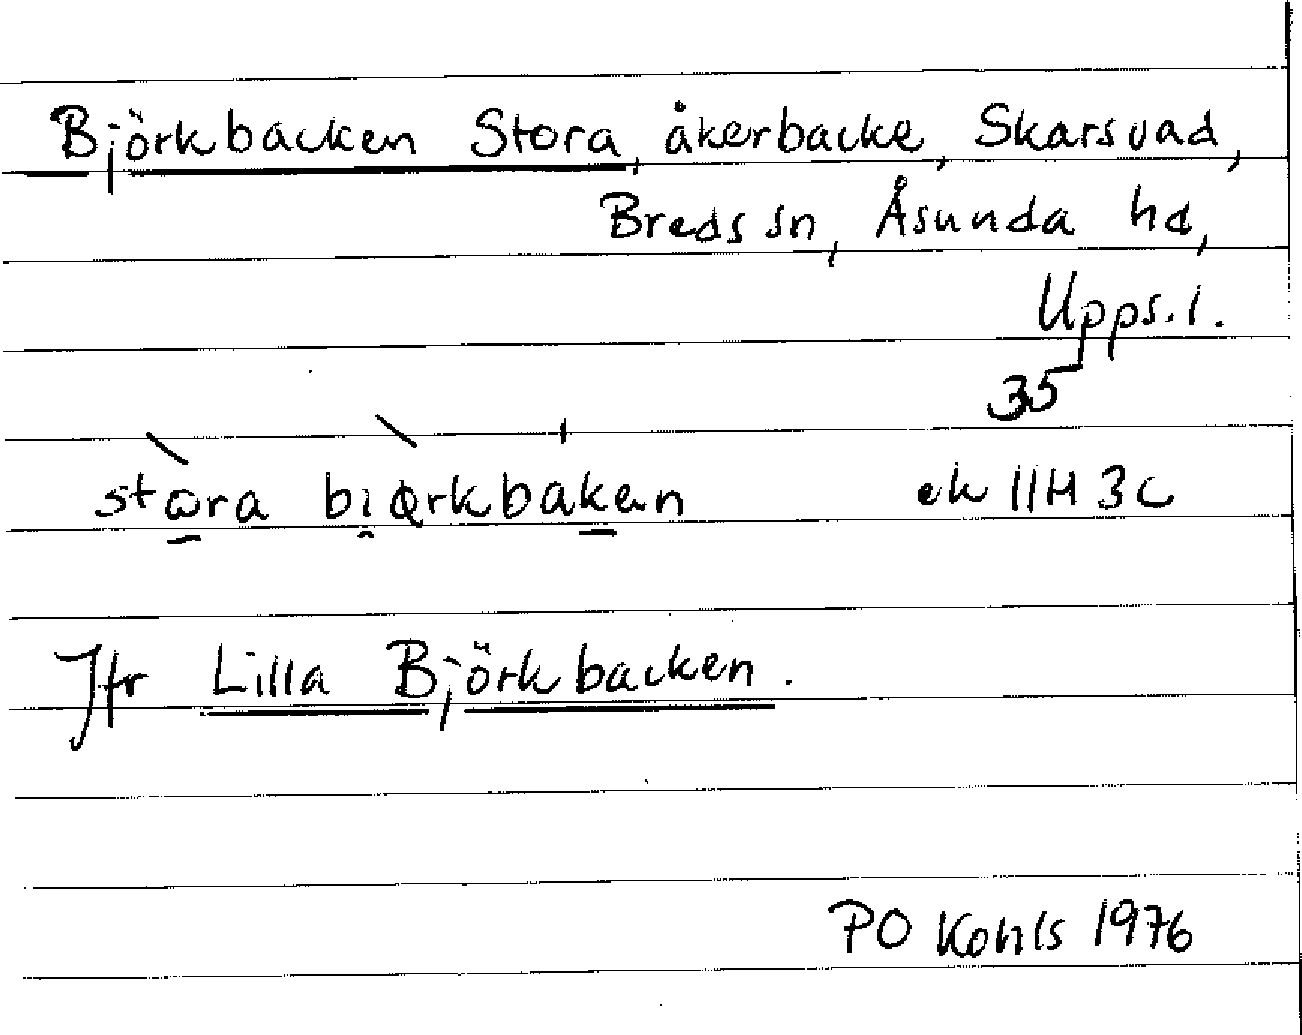 Björkbacken Stora, åkerbacke, Skarsvad,
Breds sn, Åsunda hd,
Upps. l.
35
stɷra bi̯ørkbakən ek 11H 3c
Jfr Lilla Björkbacken.
PO Kohls 1976